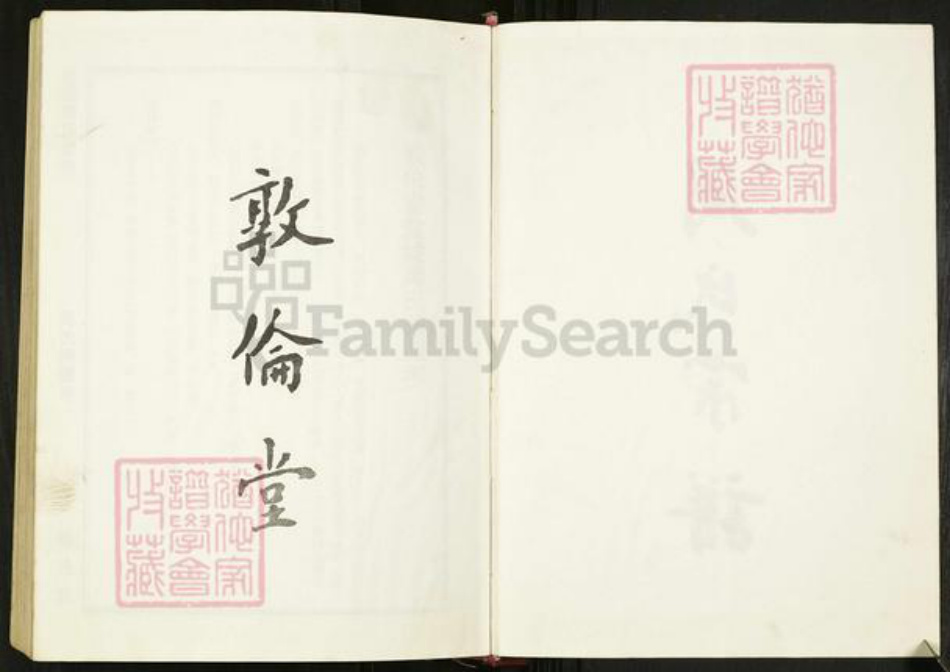 敦倫堂
猶他家
譜學會
收藏
猶他家
譜學會
收藏
FamilySearch